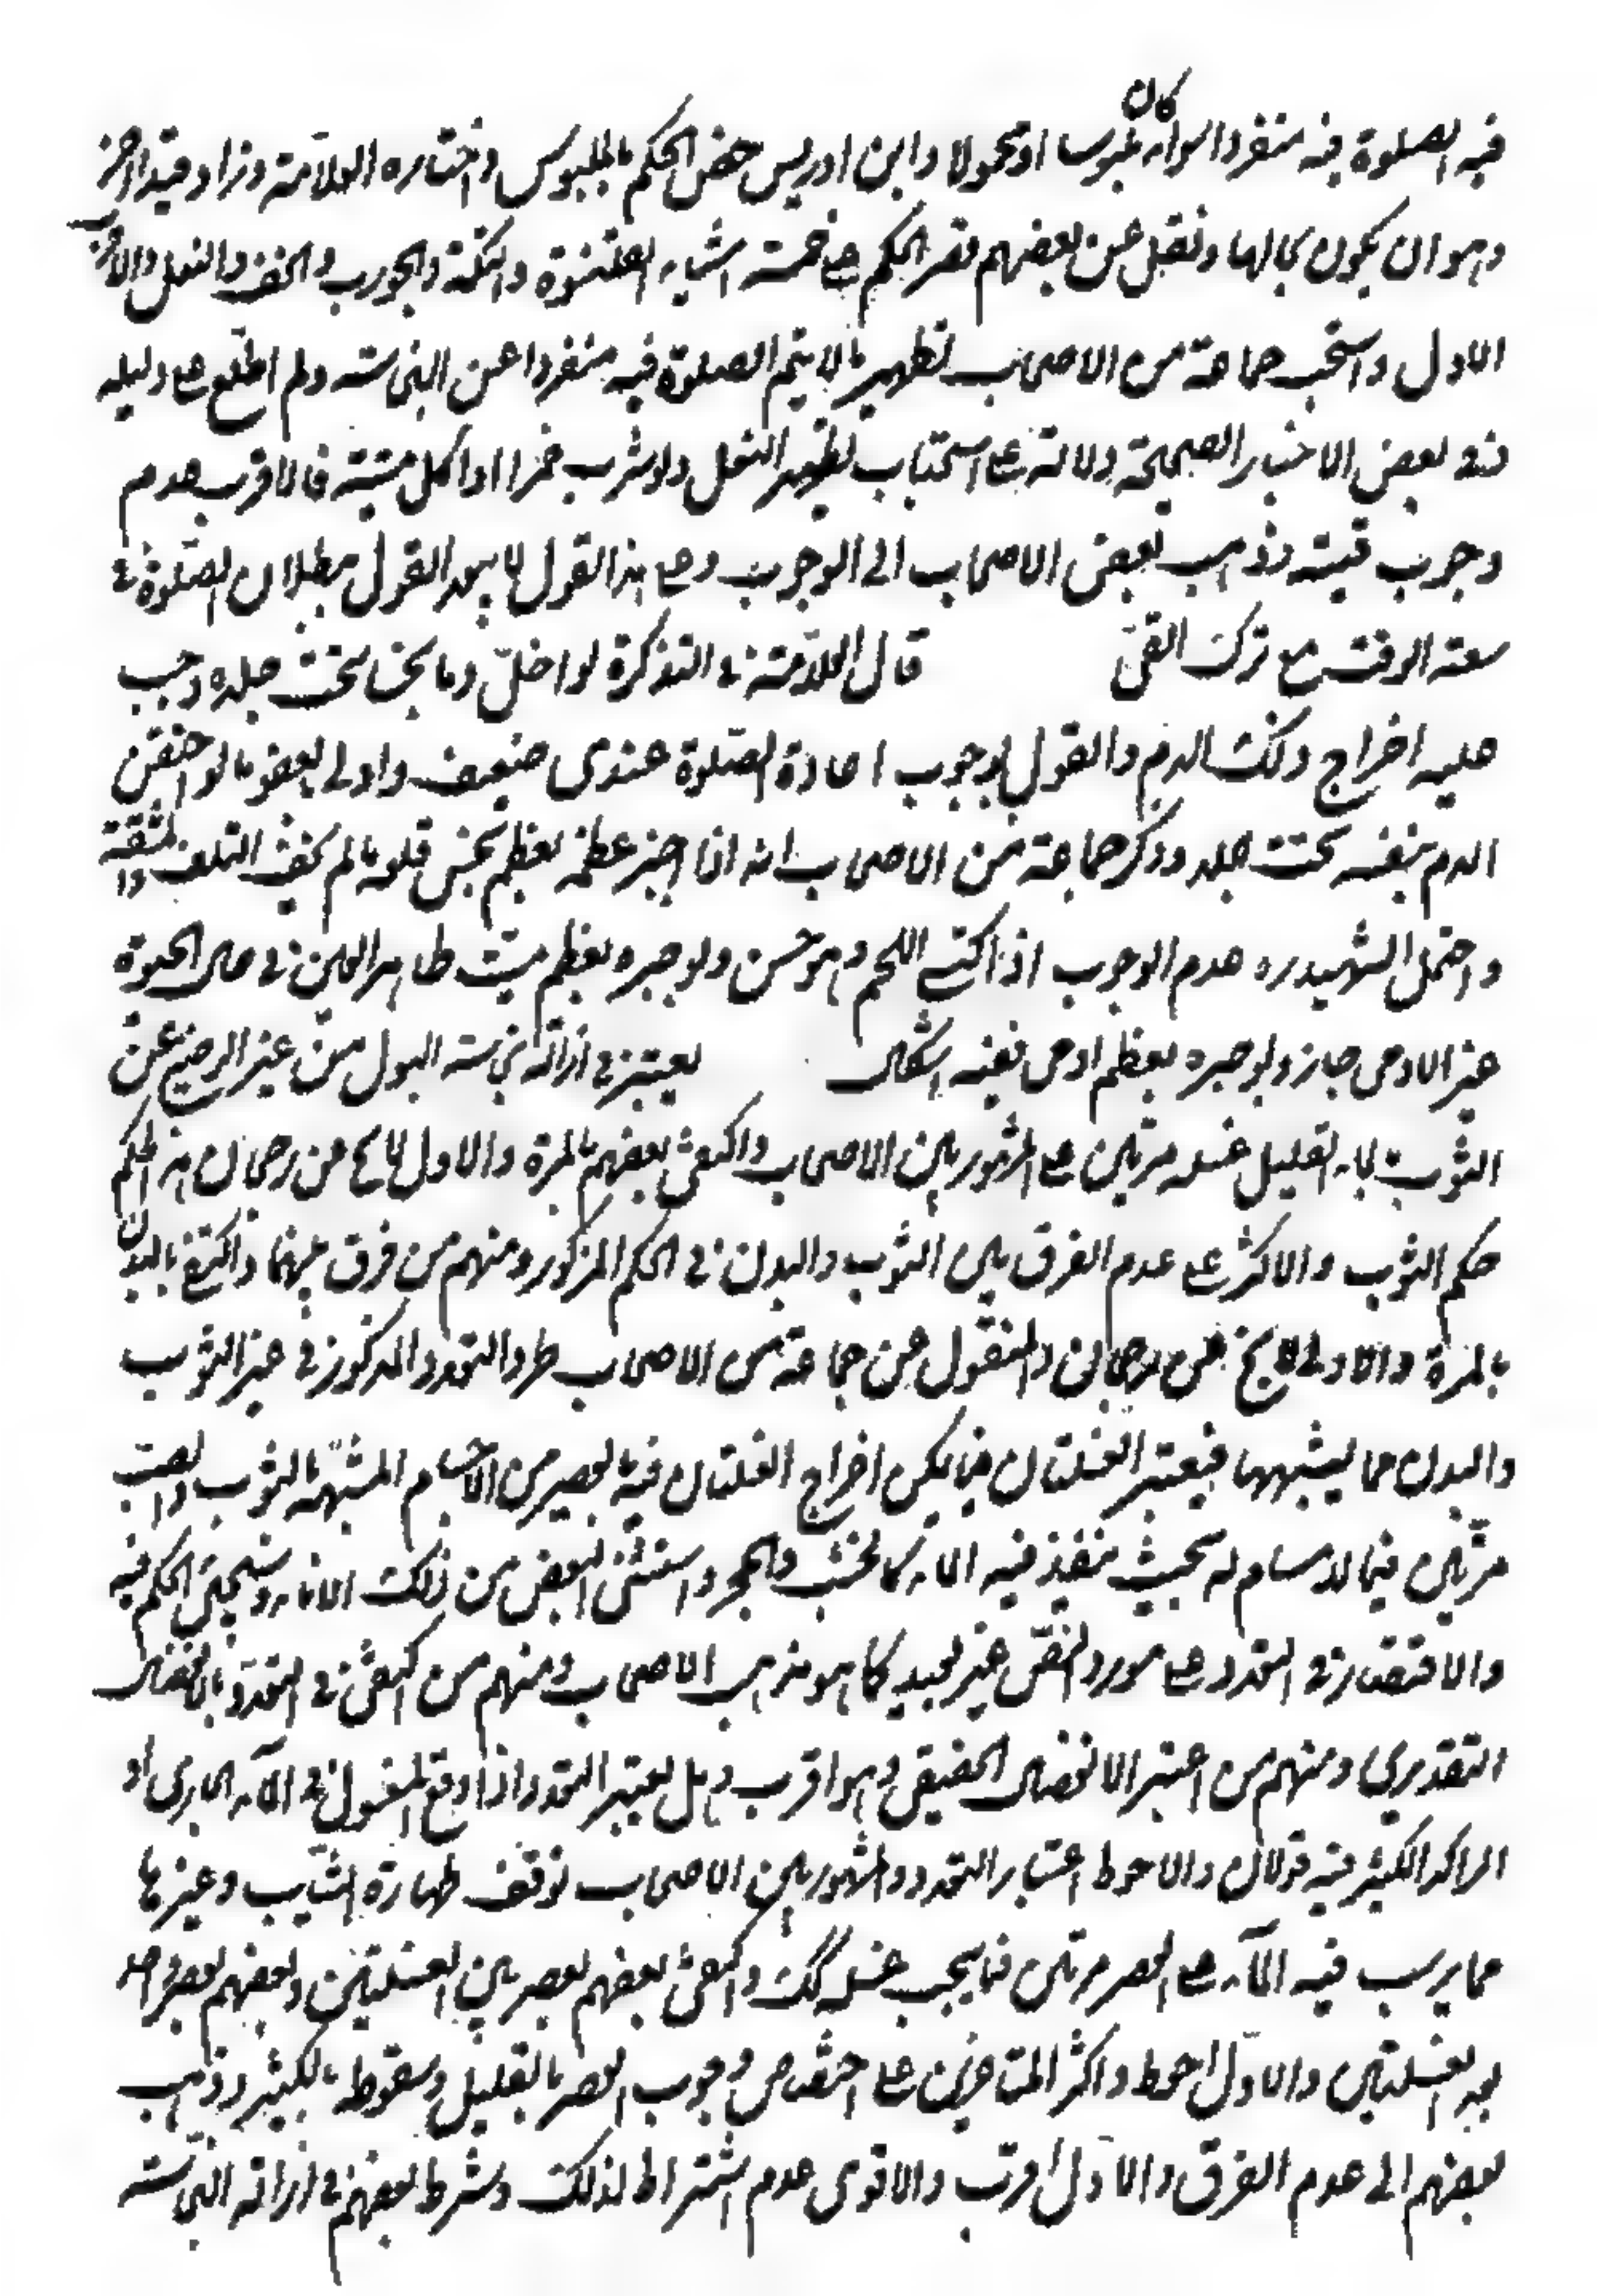 فيه الصلوة فيه منفردا سواء كان ملبوسا او محمولا وابن ادريس خص الحكم بالملبوس واختاره العلامة وزاد قيدا اخر
وهو ان يكون في محالها ونقل عن بعضهم قصر الحكم على خمسة اشياء القلنسوة والتكة والجورب والخف والنعل والاقرب
الاول واستحب جماعة من الاصحاب تطهير ما لا يتم الصلوة فيه منفردا عن النجاسة ولم اطلع على دليله
نعم في بعض الاخبار الصحيحة دلالة على استحباب تطهير النعل ولو شرب خمرا او اكل ميتة فالاقرب عدم
وجوب قيئه وذهب بعض الاصحاب الى الوجوب وعلى هذا القول لا يبعد القول ببطلان الصلوة في
سعة الوقت مع ترك القئ قال العلامة في التذكرة لو ادخل دما نجسا تحت جلده وجب
عليه اخراج ذلك الدم والقول بوجوب اعادة الصلوة عندي ضعيف واولى بالعفو ما لو احتقن
الدم بنفسه تحت جلده وذكر جماعة من الاصحاب انه اذا جبر عظمه بعظم نجس قلعه ما لم يخف التلف والمشقة
واحتمل الشهيد ره عدم الوجوب اذا اكتسى اللحم وهو حسن ولو جبره بعظم ميت طاهر العين في حال الحيوة
غير الادمي جاز ولو جبره بعظم ادمي ففيه اشكال يعتبر في ازالة نجاسة البول من غير الرضيع عن
الثوب بالماء القليل غسله مرتين على المشهور بين الاصحاب واكتفى بعضهم بالمرة والاول لا يخ من رجحان هذا حكم
حكم الثوب والاكثر على عدم الفرق بين الثوب والبدن في الحكم المذكور ومنهم من فرق بينهما واكتفى في البدن
بالمرة والاول لا يخ من رجحان والمنقول عن جماعة من الاصحاب طرد التعدد المذكور في غير الثوب
والبدن مما يشبههما فيعتبر الغسلتان فيما يمكن اخراج الغسلتان فيه بالعصر من الاجسام المشبهة بالثوب والصب
مرتين فيما لا مسام له بحيث ينفذ فيه الماء كالخشب والحجر واستثنى البعض من ذلك الاناء وسيجئ الحكم فيه
والاقتصار في التعدد على مورد النص غير بعيد كما هو مذهب الاصحاب ومنهم من اكتفى في التعدد بالانفصال
التقديري ومنهم من اعتبر الانفصال الحقيقي وهو اقرب وهل يعتبر التعدد اذا وقع المغسول في الماء الجاري او
الراكد الكثير فيه قولان والاحوط اعتبار التعدد والمشهور بين الاصحاب توقف طهارة الثياب وغيرها
مما يرسب فيه الماء على العصر مرتين فيما يجب غسله كك واكتفى بعضهم بعصر بين الغسلتين وبعضهم بعصر واحد
بعد الغسلتين والاول احوط واكثر المتاخرين على اختصاص وجوب العصر بالقليل وسقوطه بالكثير وذهب
بعضهم الى عدم الفرق والاول اقرب والاقوى عدم اشتراط الدلك وشرط بعضهم في ازالة النجاسة